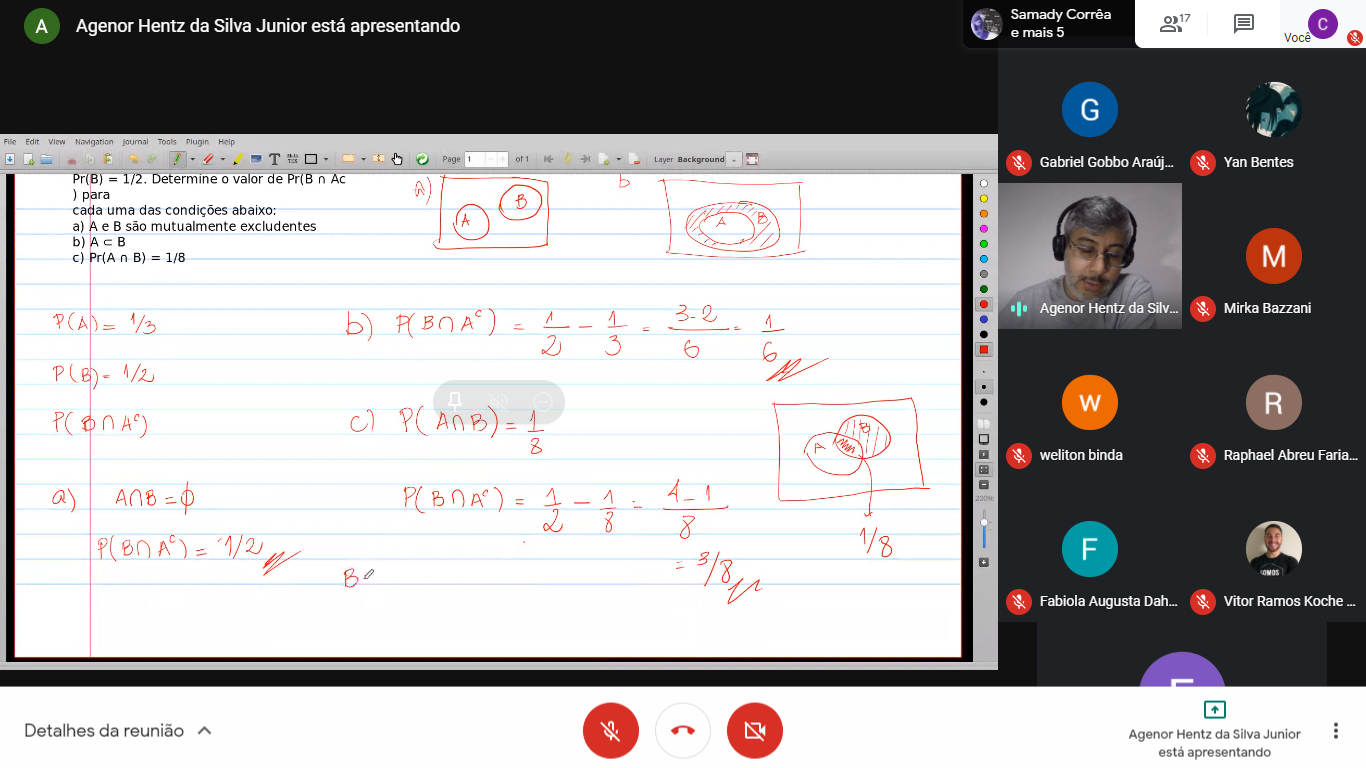 A Agenor Hentz da Silva Junior está apresentando
Samady Corrêa
e mais 5
17
Você
C
File Edit View Navigation Journal Tools Plugin Help
Page 1 of 1 Layer Background
Pr(B) = 1/2. Determine o valor de Pr(B ∩ Ac
) para
cada uma das condições abaixo:
a) A e B são mutualmente excludentes
b) A ⊂ B
c) Pr(A ∩ B) = 1/8
A)
A B
b
A B
P(A) = 1/3
b) P(B∩Aᶜ) = 1/2 - 1/3 = 3-2/6 = 1/6
P(B) = 1/2
P(B∩Aᶜ)
c) P(A∩B) = 1/8
A B
1/8
a) A∩B = ϕ
P(B∩Aᶜ) = 1/2 - 1/8 = 4-1/8
P(B∩Aᶜ) = 1/2
= 3/8
B
200%
G
Gabriel Gobbo Araúj...
Yan Bentes
Agenor Hentz da Silv...
M
Mirka Bazzani
w
weliton binda
R
Raphael Abreu Faria...
F
Fabiola Augusta Dah...
SOMOS
Vitor Ramos Koche ...
Detalhes da reunião
Agenor Hentz da Silva Junior
está apresentando